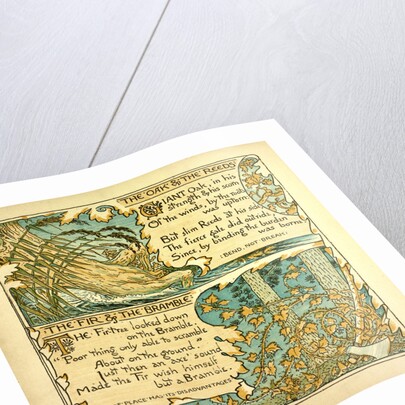 THE OAK & THE REEDS
GIANT Oak, in his
strength & his scorn
Of the winds, by the roots
was uptorn:
But slim Reeds at his side,
The fierce gale did outride,
Since, by bending the burden
was borne.
(BEND, NOT BREAK)
THE FIR & THE BRAMBLE
THE Fir-tree looked down
on the Bramble.
"Poor thing, only able to scramble
About on the ground."
Just then an axe' sound
Made the Fir wish himself
but a Bramble.
PLACE MAY HAS ITS DISADVANTAGES